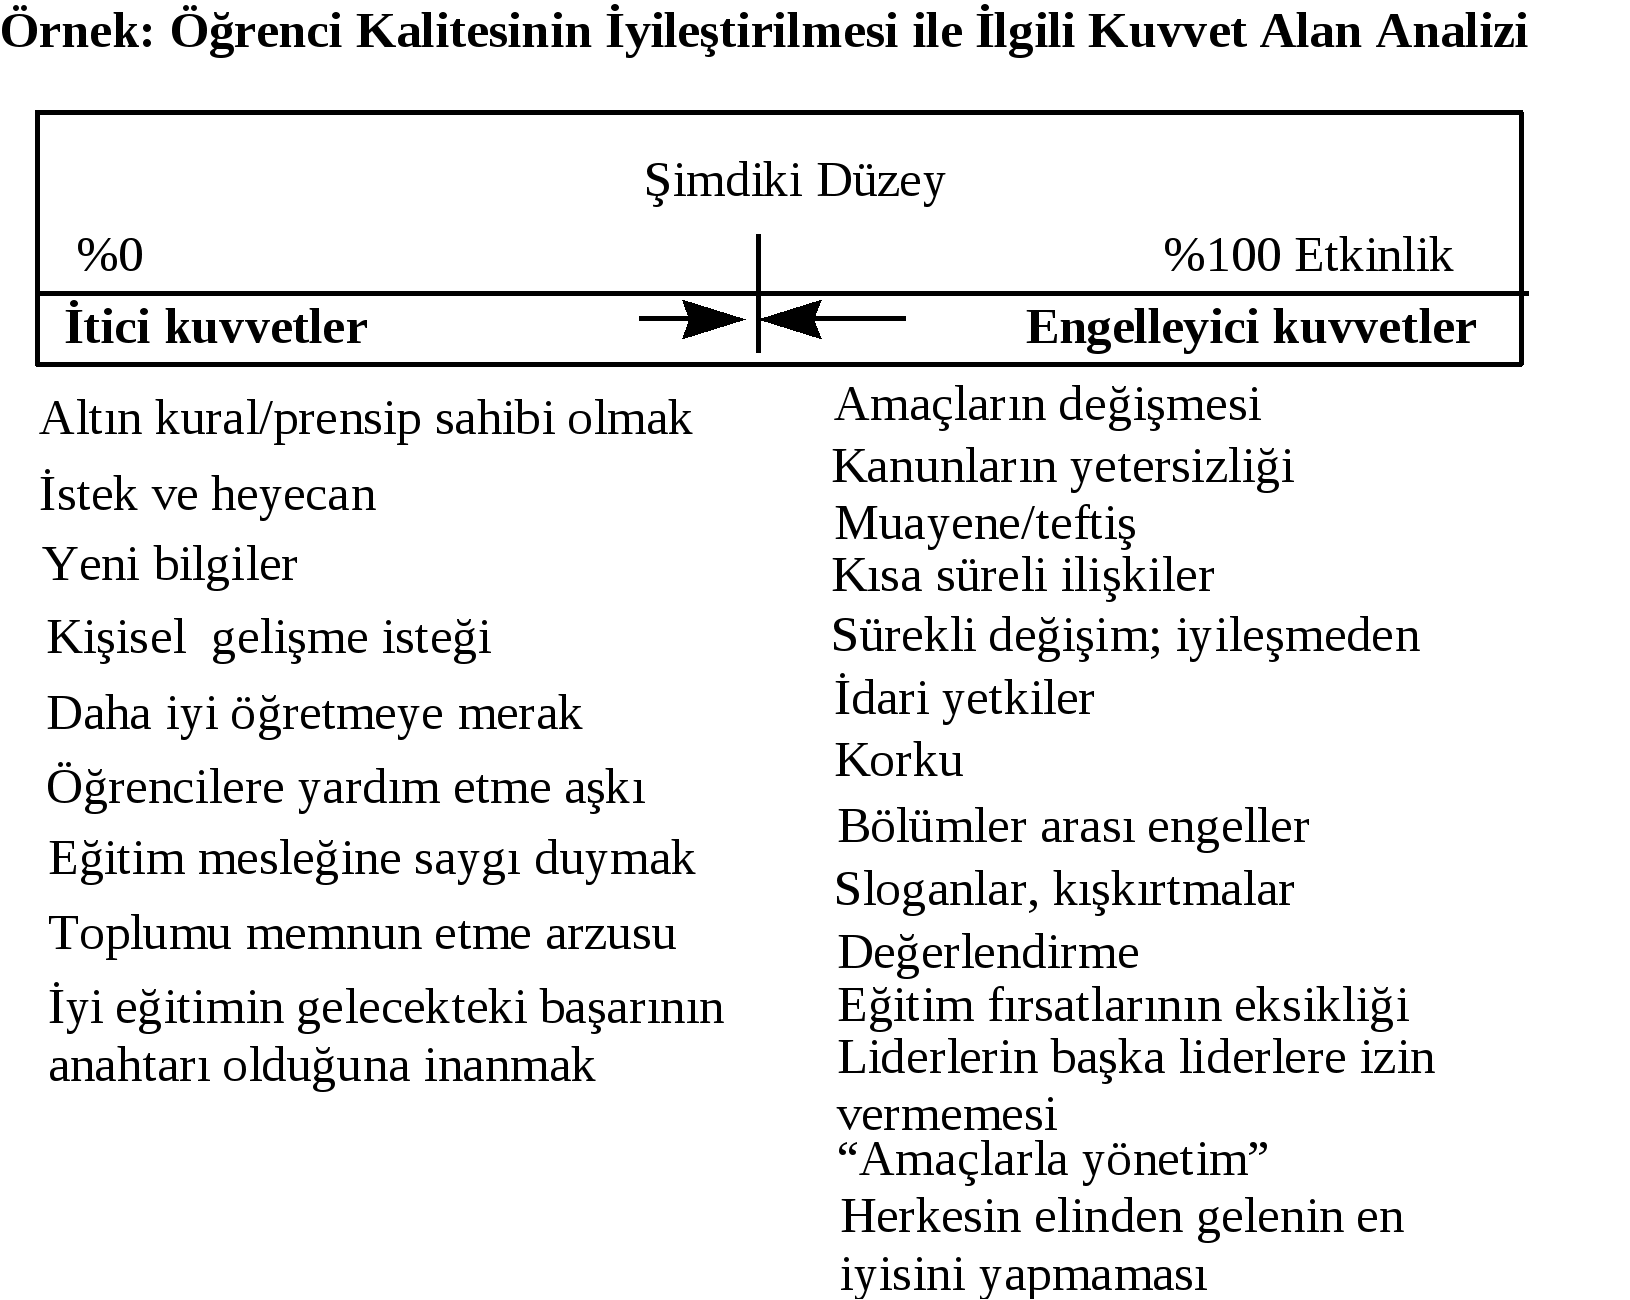 Örnek: Öğrenci Kalitesinin İyileştirilmesi ile İlgili Kuvvet Alan Analizi
Şimdiki Düzey
%0
%100 Etkinlik
İtici kuvvetler
Engelleyici kuvvetler
Altın kural/prensip sahibi olmak
İstek ve heyecan
Yeni bilgiler
Kişisel  gelişme isteği
Daha iyi öğretmeye merak
Öğrencilere yardım etme aşkı
Eğitim mesleğine saygı duymak
Toplumu memnun etme arzusu
İyi eğitimin gelecekteki başarının
anahtarı olduğuna inanmak
Amaçların değişmesi
Kanunların yetersizliği
Muayene/teftiş
Kısa süreli ilişkiler
Sürekli değişim; iyileşmeden
İdari yetkiler
Korku
Bölümler arası engeller
Sloganlar, kışkırtmalar
Değerlendirme
Eğitim fırsatlarının eksikliği
Liderlerin başka liderlere izin
vermemesi
“Amaçlarla yönetim”
Herkesin elinden gelenin en
iyisini yapmaması